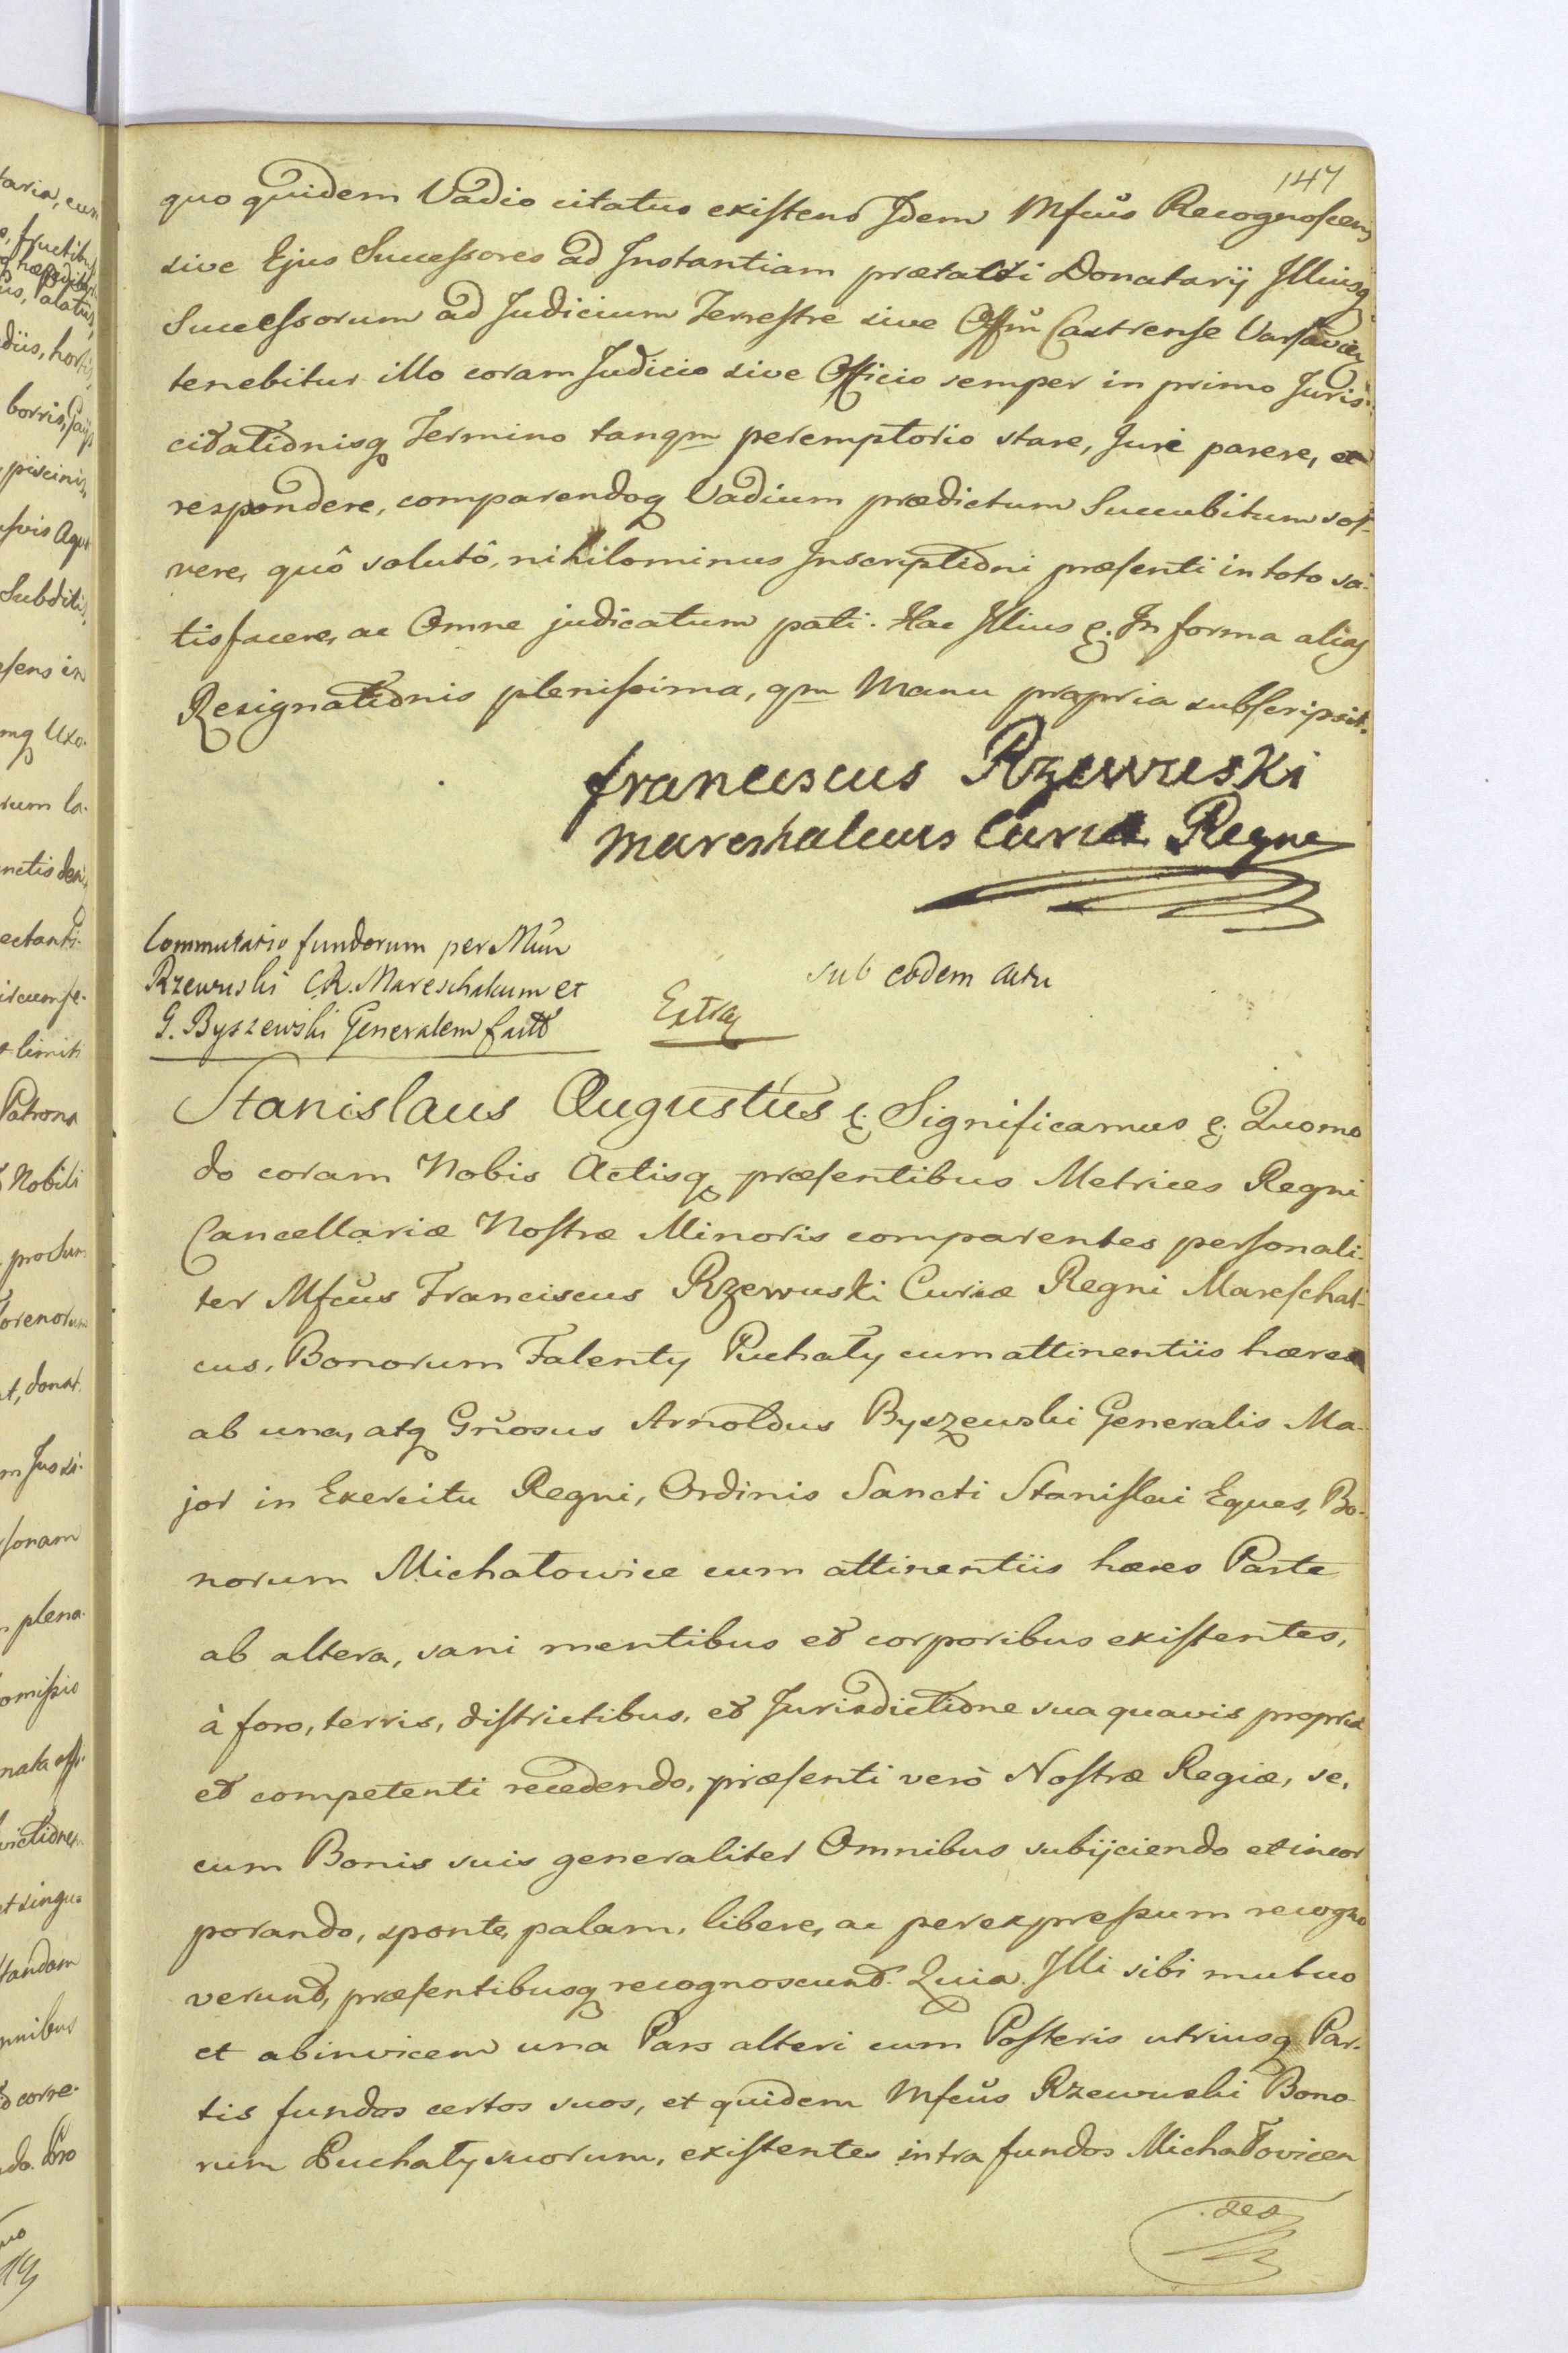 147
quo quidem Vadio citatus existens Idem Mfcus Recognoscens
sive Ejus Successores ad Instantiam prætacti Donatarij Illiusq
Successorum ad Judicium Terrestre sive Offm Castrense Varsavien
tenebitur illo coram Judicio sive Officio semper in primo Juris
citationisq Termino tanqm peremptorio stare, Juri parere, et
respondere, comparendoq Vadium prædictum Succubitum sol-
vere, quô solutô, nihilominus Inscriptioni præsenti in toto sa-
tisfacere, ac Omne judicatum pati. Hac Illius &. In forma alias
Resignationis plenissima, qm Manu propria subscripsit.
franciscus Rzewuski
mareschalcus Curiæ Regni
Commutatio fundorum per Mum
Rzewuski C.R. Mareschalcum et
G. Byszewski Generalem facta
Extra
sub eodem actu
Stanislaus Augustus &. Significamus &. Quomo
do coram Nobis Actisq præsentibus Metrices Regni
Cancellariæ Nostræ Minoris comparentes personali-
ter Mfcus Franciscus Rzewuski Curiæ Regni Mareschal-
cus, Bonorum Falenty Puchały cum attinentiis hæres
ab una, atq Gnosus Arnoldus Byszewski Generalis Ma-
jor in Exercitu Regni, Ordinis Sancti Stanislai Eques, Bo-
norum Michałowice cum attinentiis hæres Parte
ab altera, sani mentibus et corporibus existentes,
à foro, terris, districtibus, et Jurisdictione sua quavis propria
et competenti recedendo, præsenti verò Nostræ Regiæ, se,
cum Bonis suis generaliter Omnibus subijciendo et incor
porando, sponte, palam, libere, ac per expressum recogno
verunt, præsentibusq recognoscunt. Quia Illi sibi mutuo
et abinvicem una Pars alteri cum Posteris utriusq Par-
tis fundos certos suos, et quidem Mfcus Rzewuski Bono-
rum Puchały suorum, existentes intra fundos Michałovicen
ses